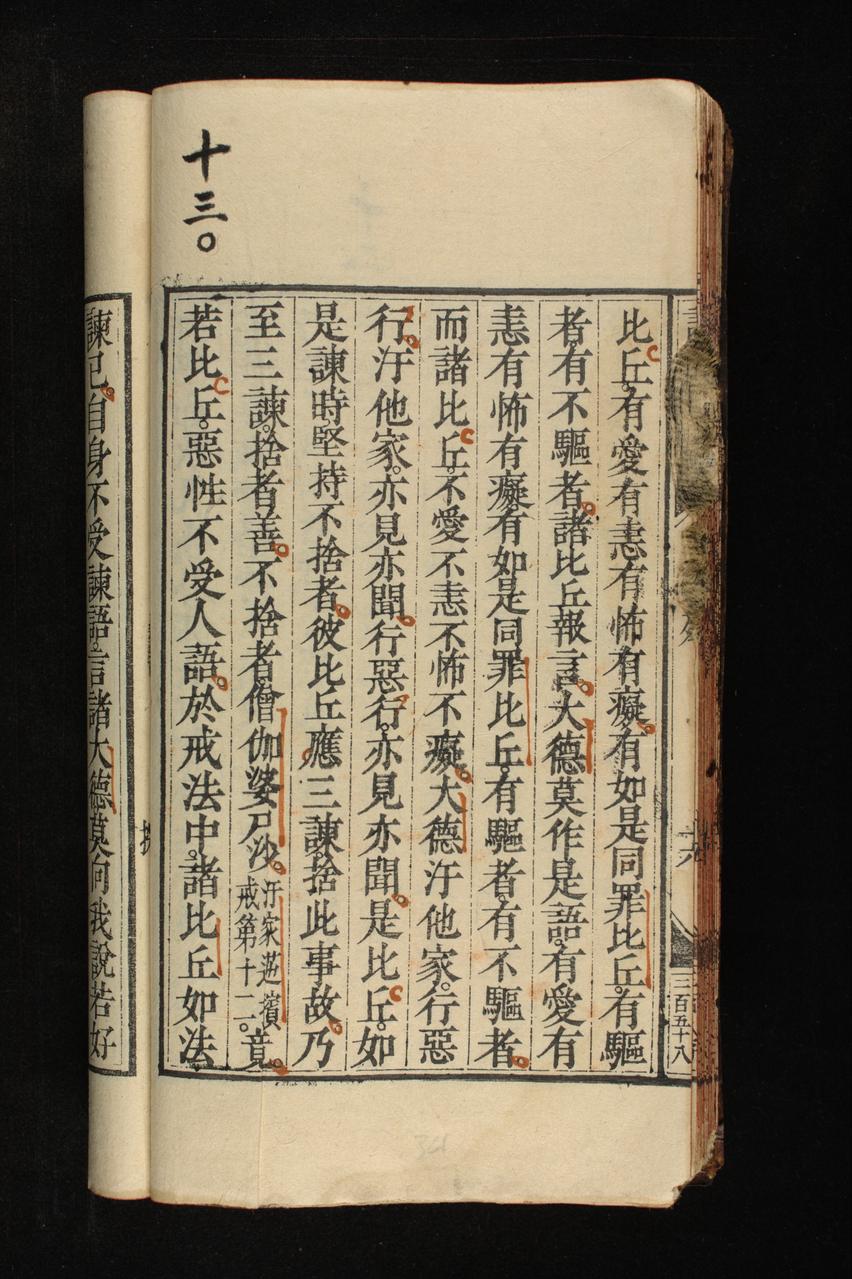 十三〇
比丘。有愛有恚有怖有癡。有如是同罪比丘。有驅
者有不驅者。諸比丘報言。大德莫作是語。有愛有
恚有怖有癡。有如是同罪比丘。有驅者。有不驅者。
而諸比丘。不愛不恚不怖不癡。大德汙他家。行惡
行。汙他家。亦見亦聞。行惡行。亦見亦聞。是比丘。如
是諫時。堅持不捨者。彼比丘應三諫。捨此事故。乃
至三諫。捨者善。不捨者。僧伽婆尸沙。汙家遊擯戒第十二。竟。
若比丘。惡性不受人語。於戒法中。諸比丘如法
諫已。自身不受諫語。言諸大德莫向我說若好
十六
三百五十八